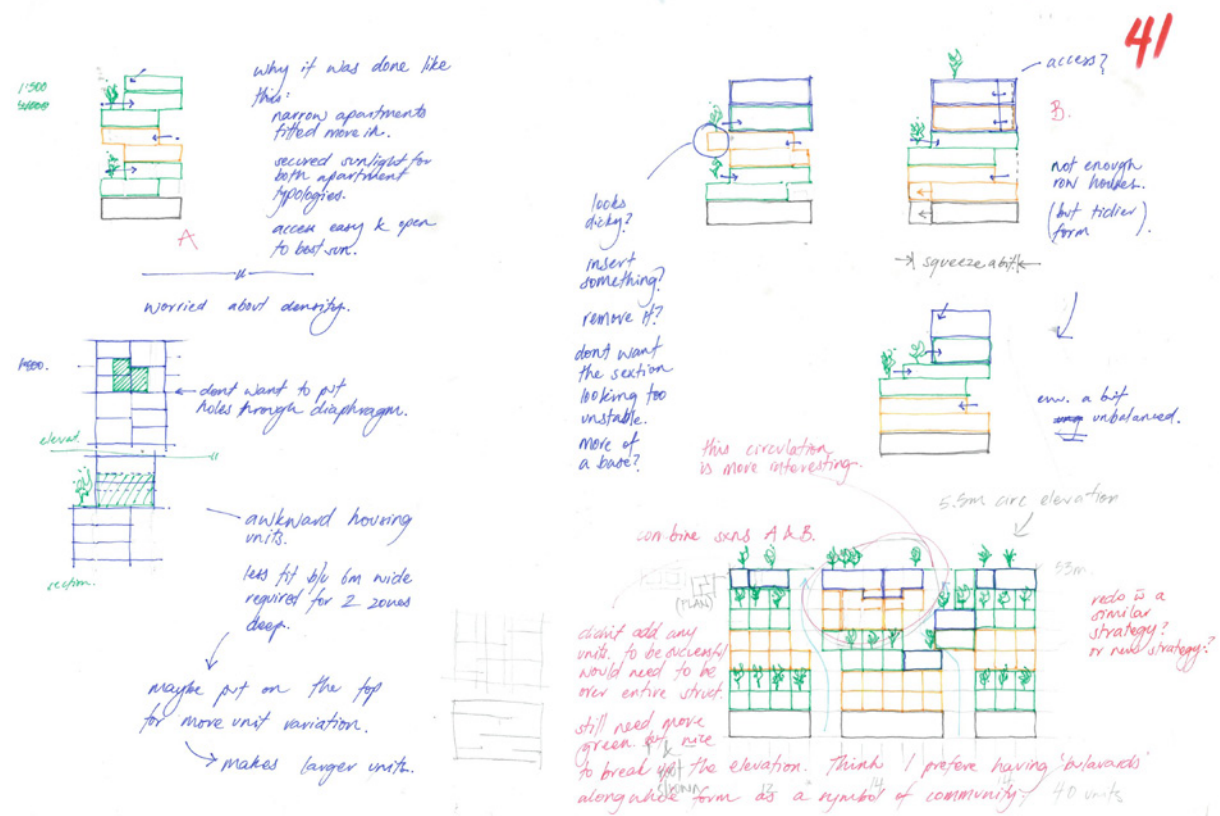 41
1:500
why it was done like
this:
narrow apartments
fitted more in.
secured sunlight for
both apartment
typologies.
access easy & open
to best sun.
A
worried about density.
1:500.
dont want to put
holes through diaphragm.
elevat.
section.
awkward housing
units.
less fit b/w 6m wide
required for 2 zones
deep.
maybe put on the top
for more unit variation.
makes larger units.
looks
dicky?
insert
something?
remove it?
dont want
the section
looking too
unstable.
more of
a base?
access?
B.
not enough
row houses.
(but tidier)
form.
squeeze a bit
env. a bit
unbalanced.
this circulation
is more interesting.
5.5m circ elevation
combine sxns A & B.
(PLAN)
53m.
didn't add any
units. to be successful
would need to be
over entire struct.
still need more
green. but nice
to break up the elevation. Think I prefere having 'bulavards'
along whole form as a symbol of community.
13
14
14
40 units
redo w a
similar
strategy?
or new strategy?